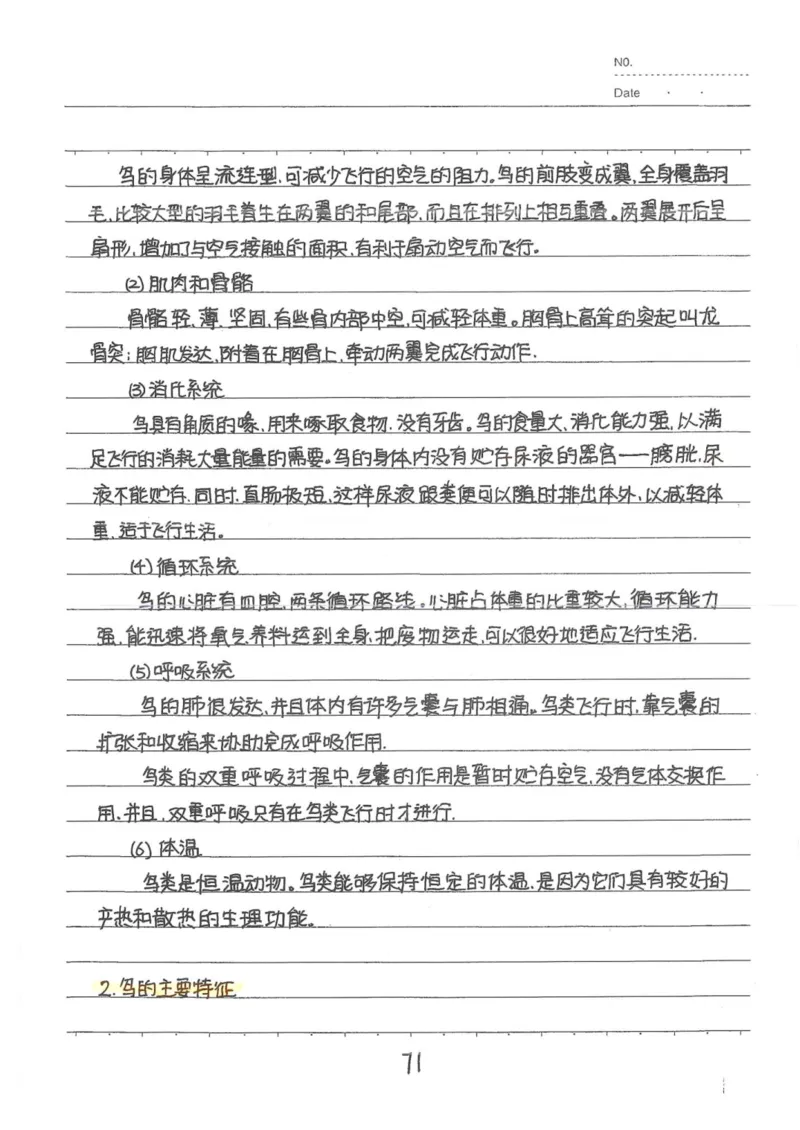 NO.
Date · ·
鸟的身体呈流线型,可减少飞行的空气的阻力。鸟的前肢变成翼,全身覆盖羽
毛,比较大型的羽毛着生在两翼的和尾部,而且在排列上相互重叠。两翼展开后呈
扇形,增加了与空气接触的面积,有利于扇动空气而飞行。
(2)肌肉和骨骼
骨骼轻、薄、坚固,有些骨内部中空,可减轻体重。胸骨上高耸的突起叫龙
骨突;胸肌发达,附着在胸骨上,牵动两翼完成飞行动作.
(3)消化系统
鸟具有角质的喙,用来啄取食物,没有牙齿。鸟的食量大,消化能力强,以满
足飞行的消耗大量能量的需要。鸟的身体内没有贮存尿液的器官——膀胱,尿
液不能贮存,同时,直肠极短,这样尿液跟粪便可以随时排出体外,以减轻体
重,适于飞行生活。
(4)循环系统
鸟的心脏有四腔,两条循环路线。心脏占体重的比重较大,循环能力
强,能迅速将氧气、养料运到全身,把废物运走,可以很好地适应飞行生活.
(5)呼吸系统
鸟的肺很发达,并且体内有许多气囊与肺相通。鸟类飞行时,靠气囊的
扩张和收缩来协助完成呼吸作用.
鸟类的双重呼吸过程中,气囊的作用是暂时贮存空气,没有气体交换作
用,并且,双重呼吸只有在鸟类飞行时才进行.
(6)体温
鸟类是恒温动物。鸟类能够保持恒定的体温,是因为它们具有较好的
产热和散热的生理功能。
2.鸟的主要特征
71